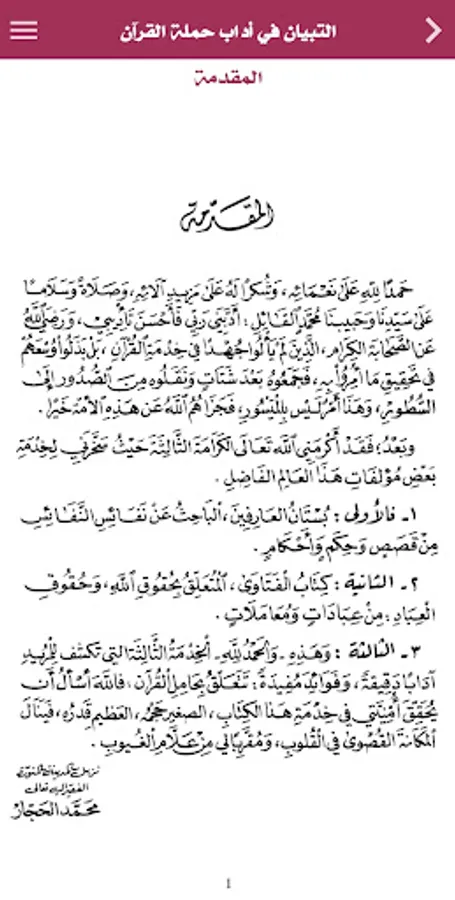 التبيان في أداب حملة القرآن
المقدمة
المقدّمة
حَمدًا لِلّٰهِ عَلىٰ نَعْمَائِهِ، وَشُكرًا لَهُ عَلىٰ مَزِيدِ آلَائِهِ، وَصَلَاةً وَسَلَامًا
عَلىٰ سَيِّدِنَا وَحَبِيبِنَا مُحَمَّدٍ القَائِلِ: أَدَّبَنِي رَبِّي فَأَحْسَنَ تَأدِيبِي، وَرَضِيَ اللّٰهُ
عَنِ الصَّحَابَةِ الكِرَامِ، الَّذِينَ لَمْ يَألُوا جُهْدًا فِي خِدمَةِ القُرآنِ، بَلْ بَذَلُوا وُسْعَهُمْ
فِي تَحقِيقِ مَا أُمِرُوا بِهِ، فَجَمَعُوهُ بَعْدَ شَتَاتٍ وَنَقَلُوهُ مِنَ الصُّدُورِ إِلَى
السُّطُورِ، وَهَذَا أَمْرٌ لَيْسَ بِالمَيْسُورِ، فَجَزَاهُمُ اللّٰهُ عَنْ هَذِهِ الأُمَّةِ خَيْرًا.
وَبَعْدُ؛ فَقَدْ أَكْرَمَنِي اللّٰهُ تَعَالَى الكَرَامَةَ الثَّالِثَةَ حَيْثُ سَخَّرَنِي لِخِدْمَةِ
بَعْضِ مُؤَلفَاتِ هَذَا العَالِمِ الفَاضِلِ.
١ـ فالأولى: بُسْتَانُ العَارِفِينَ، البَاحِثُ عَنْ نَفَائِسِ النَّفَائِسِ
مِنْ قَصَصٍ وَحِكَمٍ وَأَحْكَامٍ.
٢ـ الثانية: كِتَابُ الفَتَاوَى، المُتَعَلِّقُ بِحُقُوقِ اللّٰهِ، وَحُقُوقِ
العِبَادِ: مِنْ عِبَادَاتٍ وَمُعَامَلَاتٍ.
٣ـ الثالثة: وَهَذِهِ ـ وَالحَمْدُ لِلّٰهِ ـ الخِدْمَةُ الثَّالِثَةُ التي تَكشف لِلْمُرِيدِ
آدَابًا دَقِيقَةً، وَفَوَائِدَ مُفِيدَةً: تَتَعَلَّقُ بِحَامِلِ القُرآنِ، فَاللّٰهَ أَسْأَلُ أَنْ
يُحَقِّقَ أُمْنِيَّتِي فِي خِدْمَةِ هَذَا الكِتَابِ، الصَغِيرِ حَجْمُهُ، العَظِيمِ قَدْرُهُ، فَيَنَالَ
المَكَانَةَ القُصْوَى فِي القُلُوبِ، وَمُقَرِّبًا لِي مِنْ عَلَّامِ الغُيُوبِ.
الفقير إليه تعالى
محمّد الحجّار
1